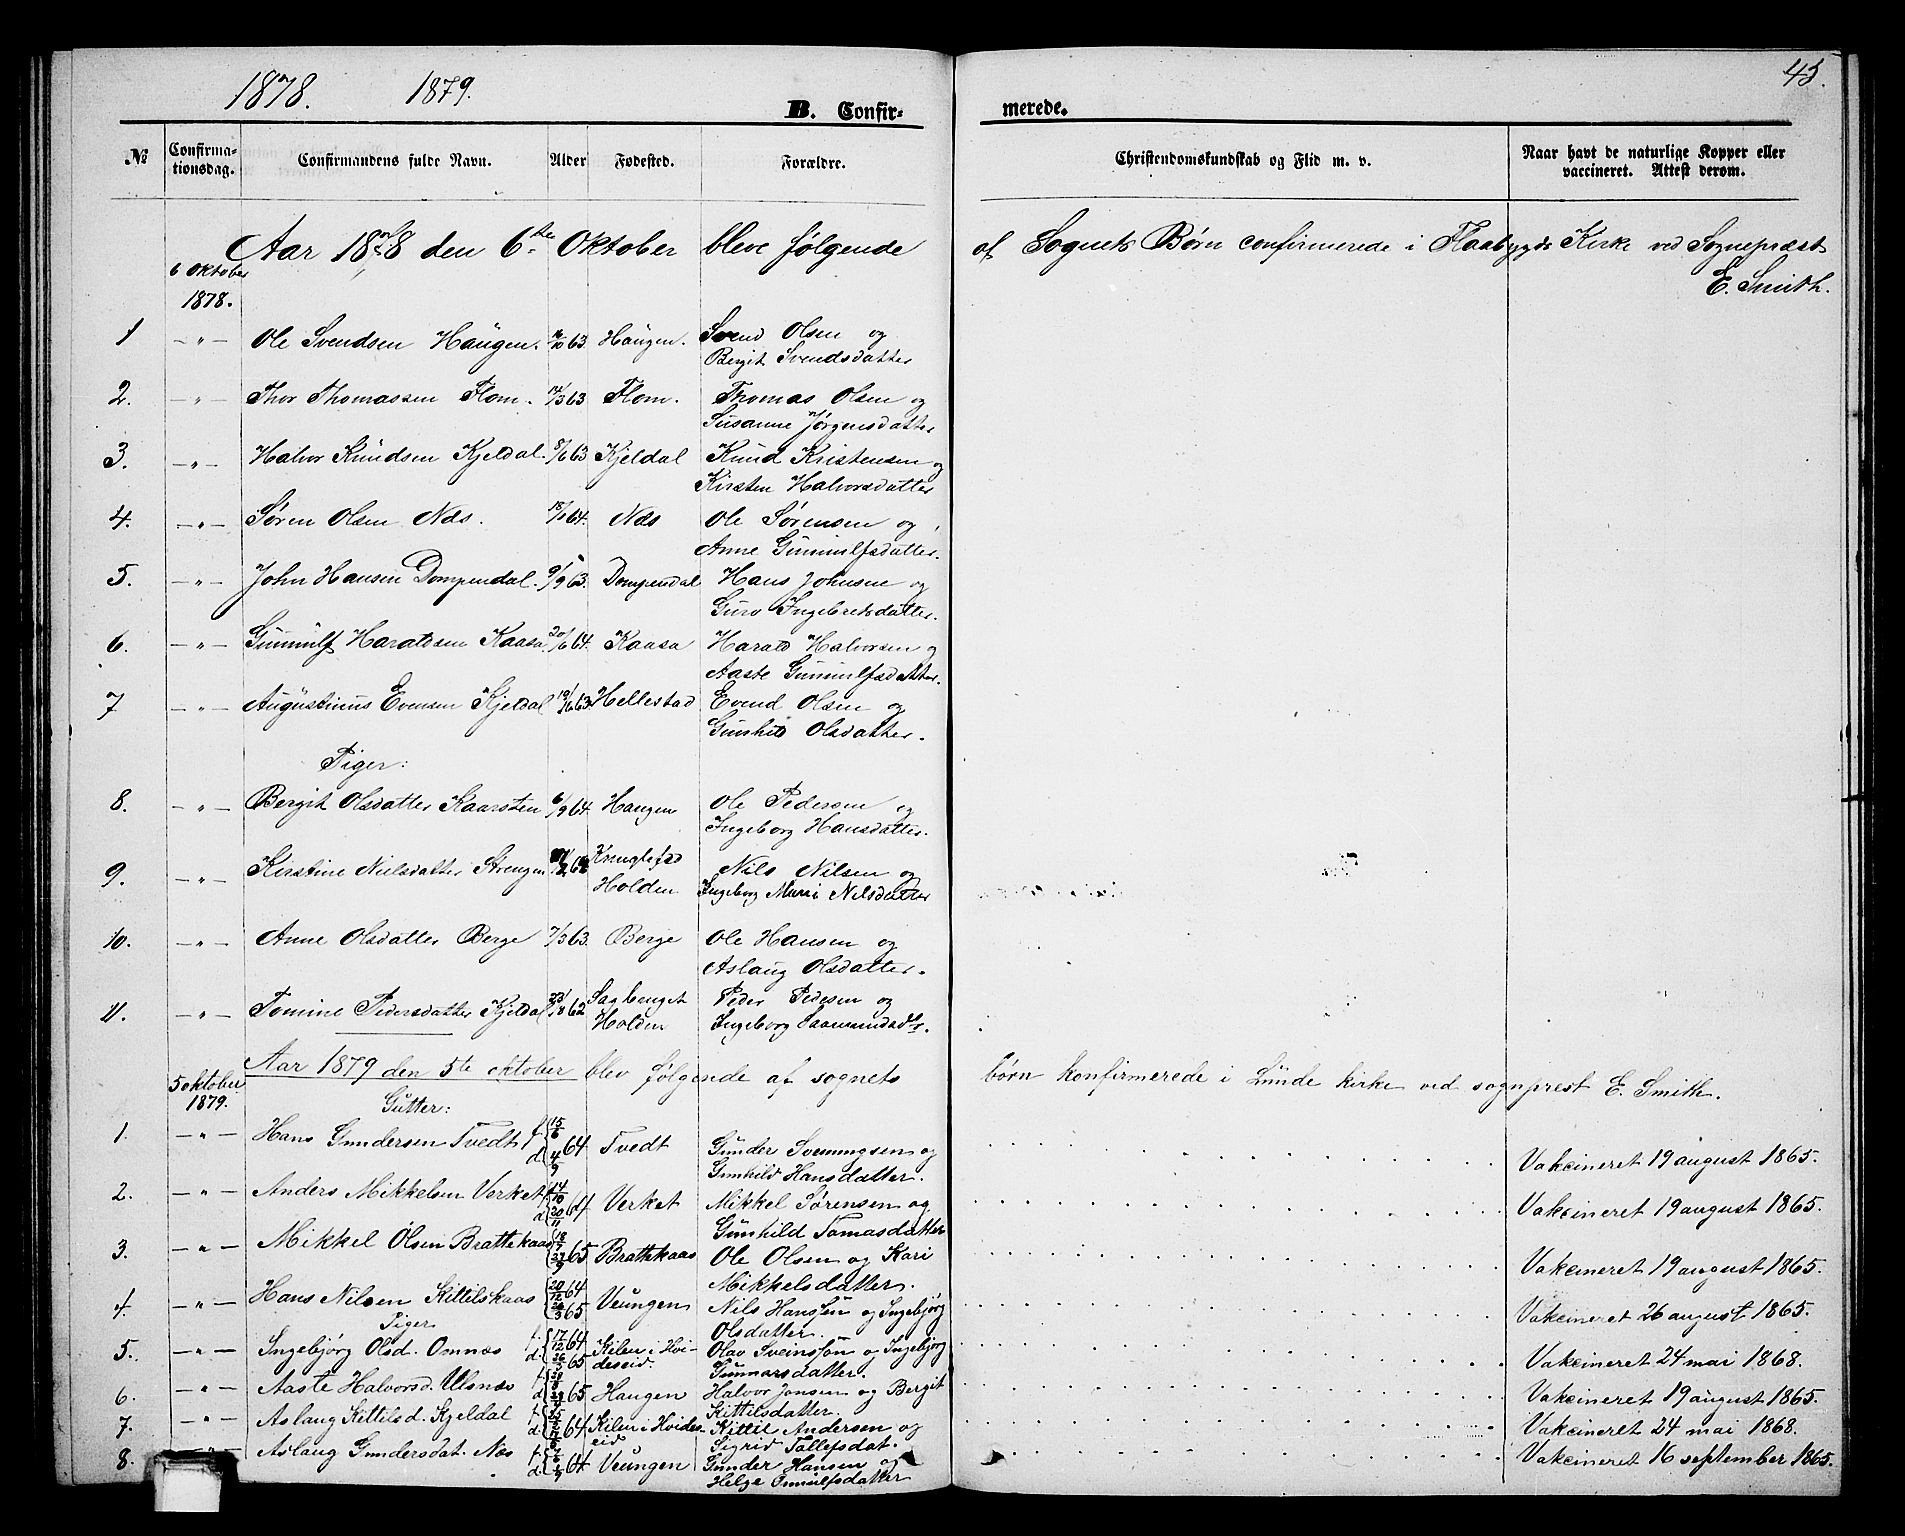 1878. 1879. 45.
B. Confirmerede.
№ Confirmationsdag. Confirmandens fulde Navn. Alder Fødested. Forældre. Christendomskundskab og Flid m. v. Naar havt de naturlige Kopper eller vaccineret. Attest derom.
Aar 1878 den 6te Oktober bleve følgende af Sognets Børn confirmerede i Flaabygds Kirke ved Sognepræst
E. Smith.
6 Oktober
1878.
1 -"- Ole Svendsen Haugen. 63. Haugen. Svend Olsen og
Bergit Svendsdatter
2. -"- Thor Thomassen Flom. 14/3 63 Flom. Thomas Olsen og
Susanne Jørgensdatter
3. -"- Halvor Knudsen Kjeldal. 8/6 63 Kjeldal Knud Kristensen og
Kirsten Halvorsdatter
4. -"- Søren Olsen Næs. 64. Næs Ole Sørensen og
Anne Gunnulfsdatter.
5. -"- John Hansen Dompendal. 9/9 63. Dompendal Hans Johnsen og
Guro Ingebretsdatter.
6. -"- Gunnulf Haraldsen Kaasa. 20/6 64. Kaasa Harald Halvorsen og
Aaste Gunnulfsdatter.
7 -"- Augustinus Evensen Kjeldal 19/6 63. Hellestad Evend Olsen og
Gunhild Olsdatter.
Piger:
8. -"- Bergit Olsdatter Kaarsten 6/9 64. Haugen Ole Pedersen og
Ingeborg Hansdatter.
9. -"- Kirstine Nielsdatter Strengen Holden Nils Nilsen og
Ingeborg Marie Nilsdatter
10. -"- Anne Olsdatter Berge 7/3 63. Berge Ole Hansen og
Aslaug Olsdatter.
11. -"- Tomine Pedersdatter Kjeldal 62 Holden Peder Pedesen og
Ingeborg
Aar 1879 den 5te oktober blev følgende af sognets børn konfirmerede i Lunde kirke ved sognprest E. Smith.
5 oktober
1879.
Gutter:
1. -"- Hans Gundersen Tvedt f. 15/6 d. 4/9 64. Tvedt Gunder Svenningsen og
Gunhild Hansdatter. Vakcineret 19 august 1865.
2. -"- Anders Mikkelsen Verket f. 14/10 d. 20/11 64 Verket Mikkel Sørensen og
Gunhild Tomasdatter Vakcineret 19 august 1865.
3. -"- Mikkel Olsen Brattekaas 65 Brattekaas Ole Olsen og Kari
Mikkelsdatter. Vakcineret 19 august 1865.
4 -"- Hans Nilsen Kittilskaas 20/12 64 26/3 65 Veungen Nils Hansen og Ingebjørg
Olsdatter. Vakcineret 26 august 1865.
Piger
5. -"- Ingebjørg Olsd. Omnæs f. 17/12 64 d. 26/3 65 Kilen i Hvideseid. Olav Sveinsøn og Ingebjørg
Gunnarsdatter. Vakcineret 24 mai 1868.
6. -"- Aaste Halvorsd. Ulsnæs f. d. 65 Haugen Halvor Jonsen og Bergit
Kittilsdatter. Vakcineret 19 august 1865.
7. -"- Aslaug Kittilsd. Kjeldal f. d. 64 Kilen i Hvideseid Kittil Andersen og
Sigrid Tallefsdat. Vakcineret 24 mai 1868.
8. Aslaug Gundersdat. Næs f. d. 64 Veungen Gunder Hansen og
Helge Gunulfsdatter Vakcineret 16 september 1865.